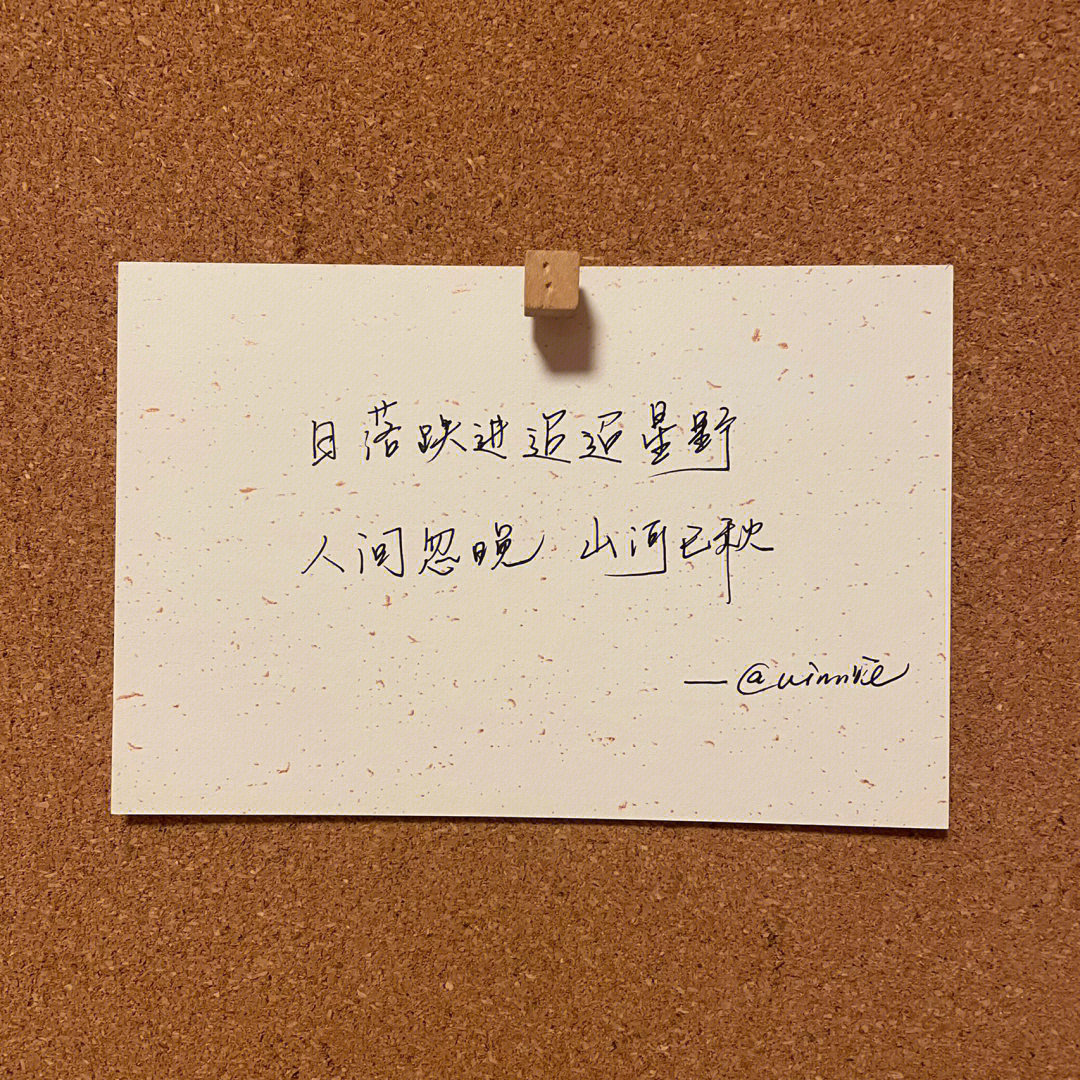 日落跌进迢迢星野
人间忽晚 山河已秋
—@winnie